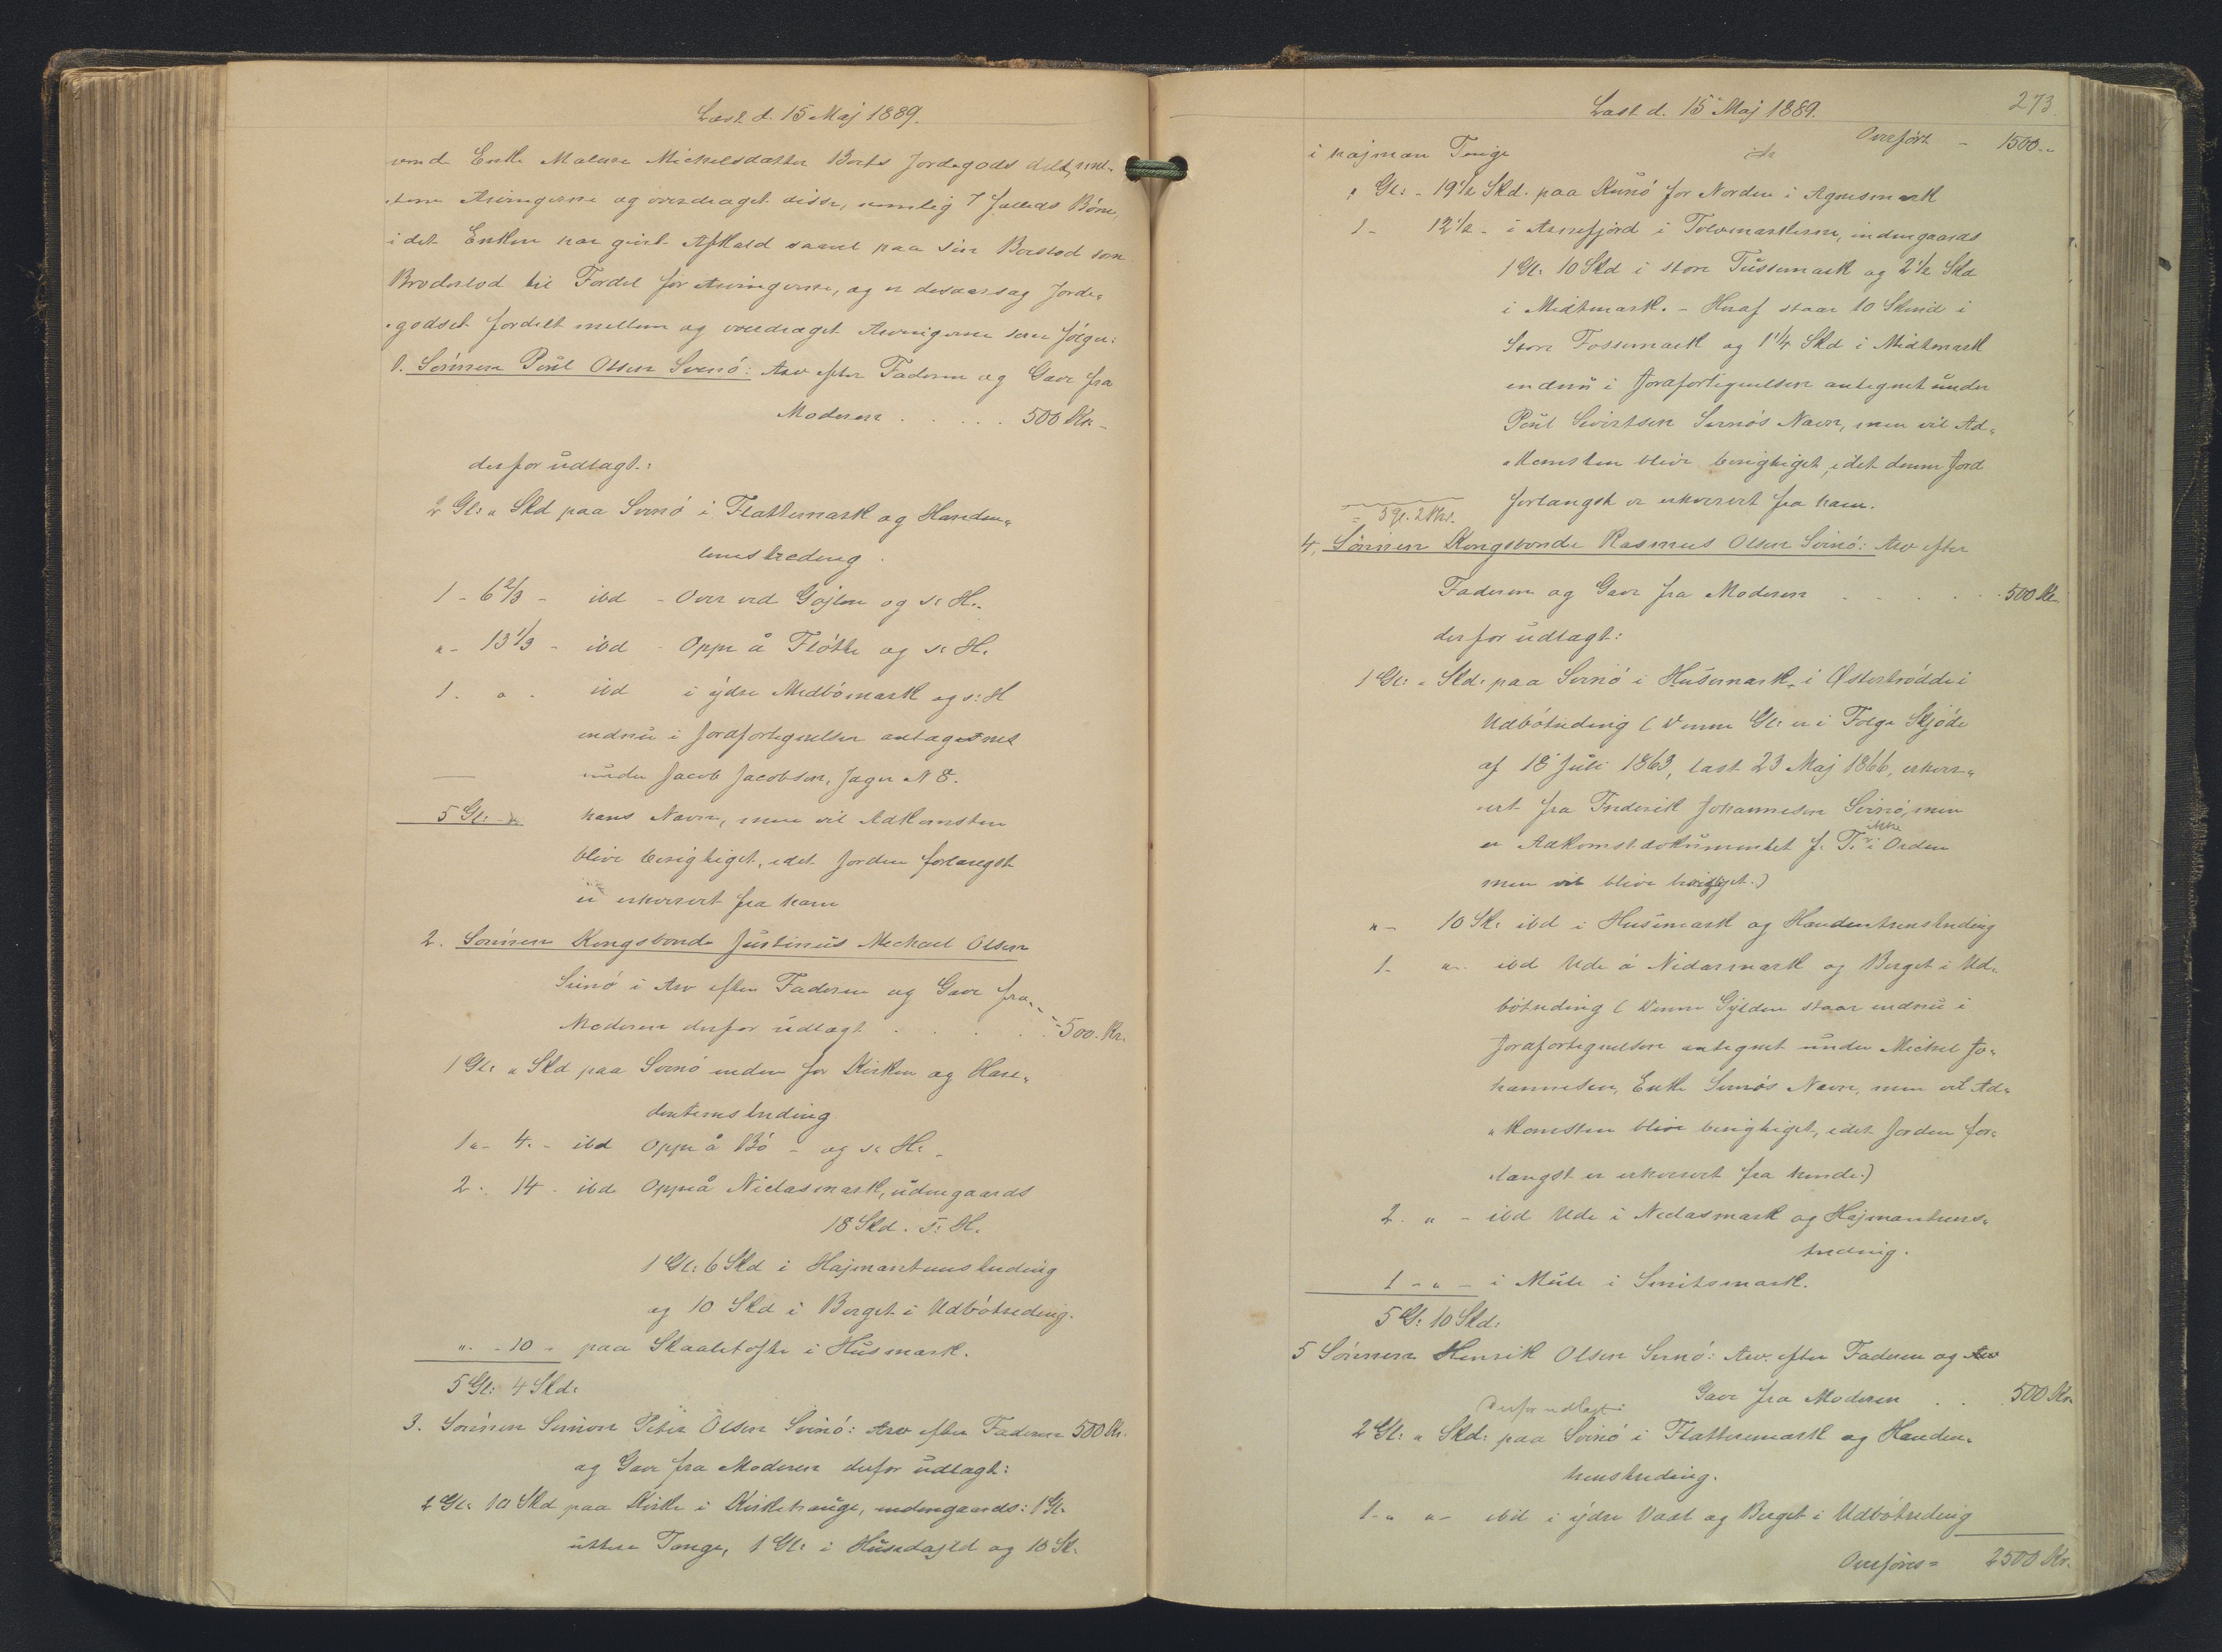 Læst d. 15 Maj 1889.
Enke Malene Michelsdatter Boets Jordegods delt mel-
Arvingerne og overdraget disse, nemlig 7 Fælleds Børn,
idet Enken har givet Afkald saavel paa sin Boeslod som
Broderlod til Fordel for Arvingerne, og er desaarsag Jorde-
godset fordelt mellem og overdraget Arvingerne som følger:
1. Sønnen Poul Olsen Svinø: Arv efter Faderen og Gave fra
Moderen . . . . . 500 Kr. -
derfor udlagt:
2 Gl: " Skd paa Svinø i Flattemark og Handen-
tunstreding.
1 - 6 2/3 - ibd - Over ved Gøjlen og s: H:
" - 13 1/3 - ibd - Oppe å Fløtte og s: H.
1. " . ibd i ydre Medbømark og s: H
endnu i Jordfortegnelsen antegnet
under Jacob Jacobsen, Jager N 8.
5 Gl: - " hans Navn, men vil Adkomsten
blive berigtiget, idet Jorden forlængst
er erhvervet fra ham
2. Sønnen Kongsbonde Justinus Michael Olsen
Svinø i Arv efter Faderen og Gave fra
Moderen derfor udlagt . . . . 500. Kr.
1 Gl: " Skd paa Svinø inden for Kirken og Han-
dentunstreding
1 " - 4. - ibd Oppe å Bø - og s: H: -
2 - 14 - ibd Oppeå Niclasmark, udengaards
18 Skd. s: H.
1 Gl: 6 Skd i Hajmantunstreding
og 10 Skd i Berget i Udbøtreding.
" - 10 - paa Skaaletofte i Husmark.
5 Gl: 4 Skd:
3. Sønnen Simon Peter Olsen Svinø: Arv efter Faderen 500 Kr.
og Gave fra Moderen derfor udlagt:
2 Gl: 10 Skd paa Kirke i Kirkehauge, indengaards: 1 Gl:
uttere Tange, 1 Gl: i Husedajld og 10 Sk:
Læst d. 15 Maj 1889. 273.
Overført - 1500 "
i hajman Tunge
" Gl: - 19 1/2 Skd. paa Kunø for Norden i Agnesmark
1 - 12 1/2 - i Arnefjord i Tolvmarkerne, indengaards
1 Gl: 10 Skd i store Fossemark og 2 1/2 Skd
i Midtmark. - Heraf staar 10 Skind i
Store Fossemark og 1 1/4 Skd i Midtmark
endnu i Jordfortegnelsen antegnet under
Poul Sivertsen Svinøs Navn, men vil Ad-
komsten blive berigtiget, idet denne Jord
forlængst er erhvervet fra ham.
= 5 gl. 2 Skd.
4. Sønnen Kongsbonde Rasmus Olsen Svinø: Arv efter
Faderen og Gave fra Moderen . . . . . 500 Kr
derfor udlagt:
1 Gl: " Skd: paa Svinø i Husemark, i Østerbrøddei
Udbøtreding (Denne Gl: er i Følge Skjøde
af 18 Juli 1863, læst 23 Maj 1866, erhver-
vet fra Frederik Johannesen Svinø, men
er Adkomstdokumentet f. T. ikke i Orden
men vil blive berigtiget.)
" - 10 Sk: ibd i Husemark og Handentunstreding
1 - " - ibd Ude å Nidarmark og Berget i Ud-
bøtreding (Denne Gylden staar endnu i
Jordfortegnelsen antegnet under Michel Jo-
hannesen, Enke Svinøs Navn, men vil Ad-
komsten blive berigtiget, idet Jorden for-
længst er erhvervet fra hende.)
2. " - ibd Ude i Niclasmark og Hajmantuns-
treding.
1 - " - i Mule i Smitsmark.
5 Gl: 10 Skd:
5 Sønnen Henrik Olsen Svinø: Arv. efter Faderen og Arv
Gave fra Moderen . . 500 Kr.
Derfor udlagt:
2 Gl: " Skd: paa Svinø i Flattemark og Handen-
tunstreding.
1 - " " - ibd i ydre Vaal og Berget i Udbøtreding
Overføres = 2500 Kr.